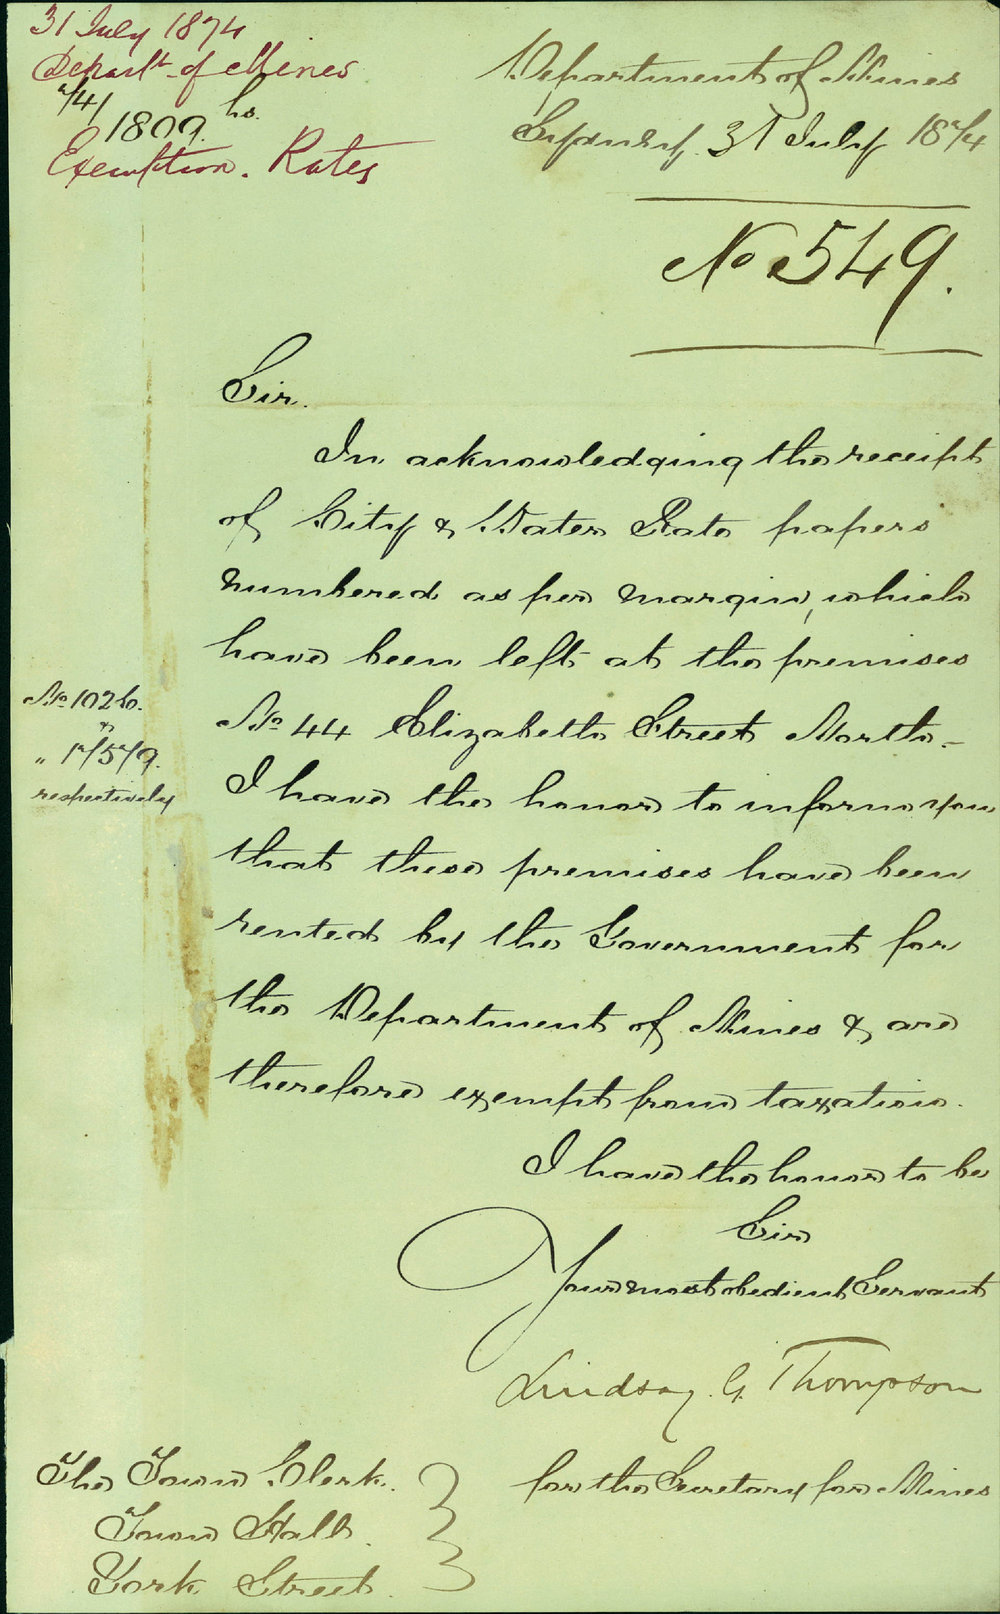 31 July 1874
Departt of Mines
74/
1809. hs.
Exemption. Rates
Department of Mines
Sydney. 31 July 1874
No 549.
Sir.
In acknowledging the receipt
of City & Water Rate papers
numbered as per margin, which
have been left at the premises
No 44 Elizabeth Street North.-
No 1026.
&
" 17579.
respectively
I have the honor to inform you
that these premises have been
rented by the Government for
the Department of Mines & are
therefore exempt from taxation.
I have the honor to be
Sir
Your most obedient Servant
Lindsay. G. Thompson
for the Secretary for Mines
The Town Clerk.
Town Hall.
York Street.